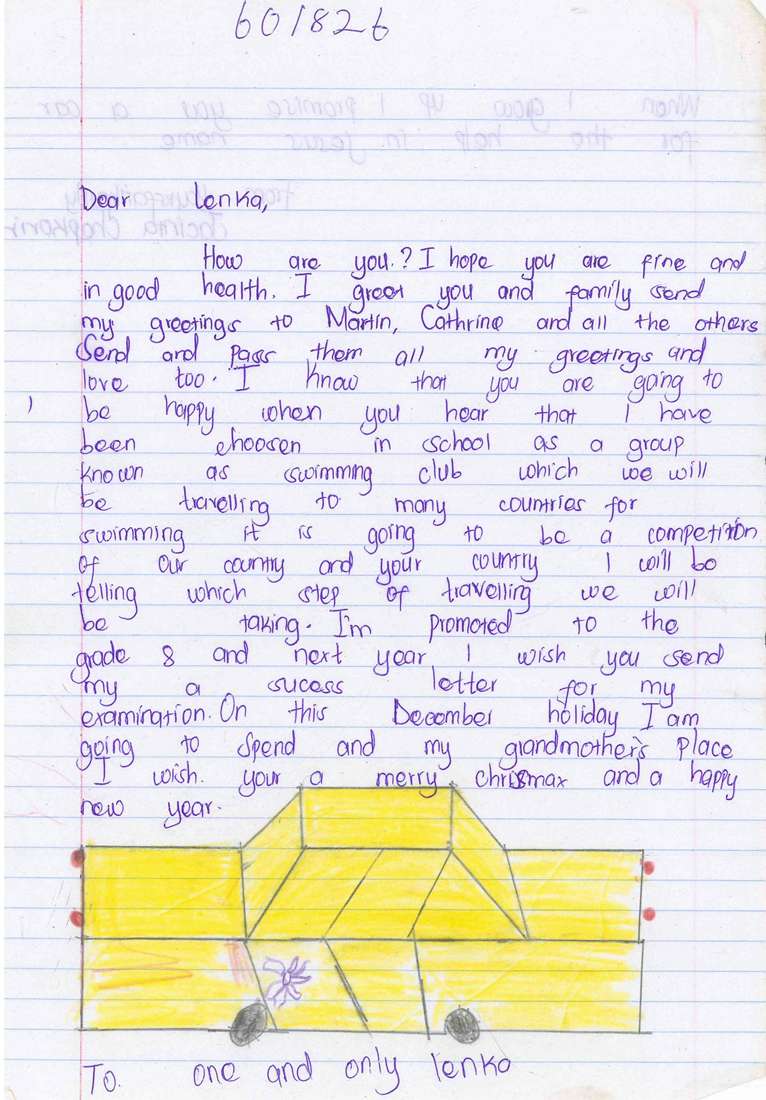 601826
Dear Lenka,
How are you.? I hope you are fine and
in good health. I greet you and family send
my greetings to Martin, Cathrine and all the others
Send and Pass them all my greetings and
love too. I know that you are going to
be happy when you hear that I have
been choosen in school as a group
known as swimming club which we will
be travelling to many countries for
swimming it is going to be a competition
of our country and your country I will be
telling which step of travelling we will
be taking. I'm promoted to the
grade 8 and next year I wish you send
my a sucess letter for my
examination. On this December holiday I am
going to spend and my grandmother's place
I wish. your a merry chrismax and a happy
new year.
To. one and only lenka
When I grow up I promise you a car
for the help in Jesus name